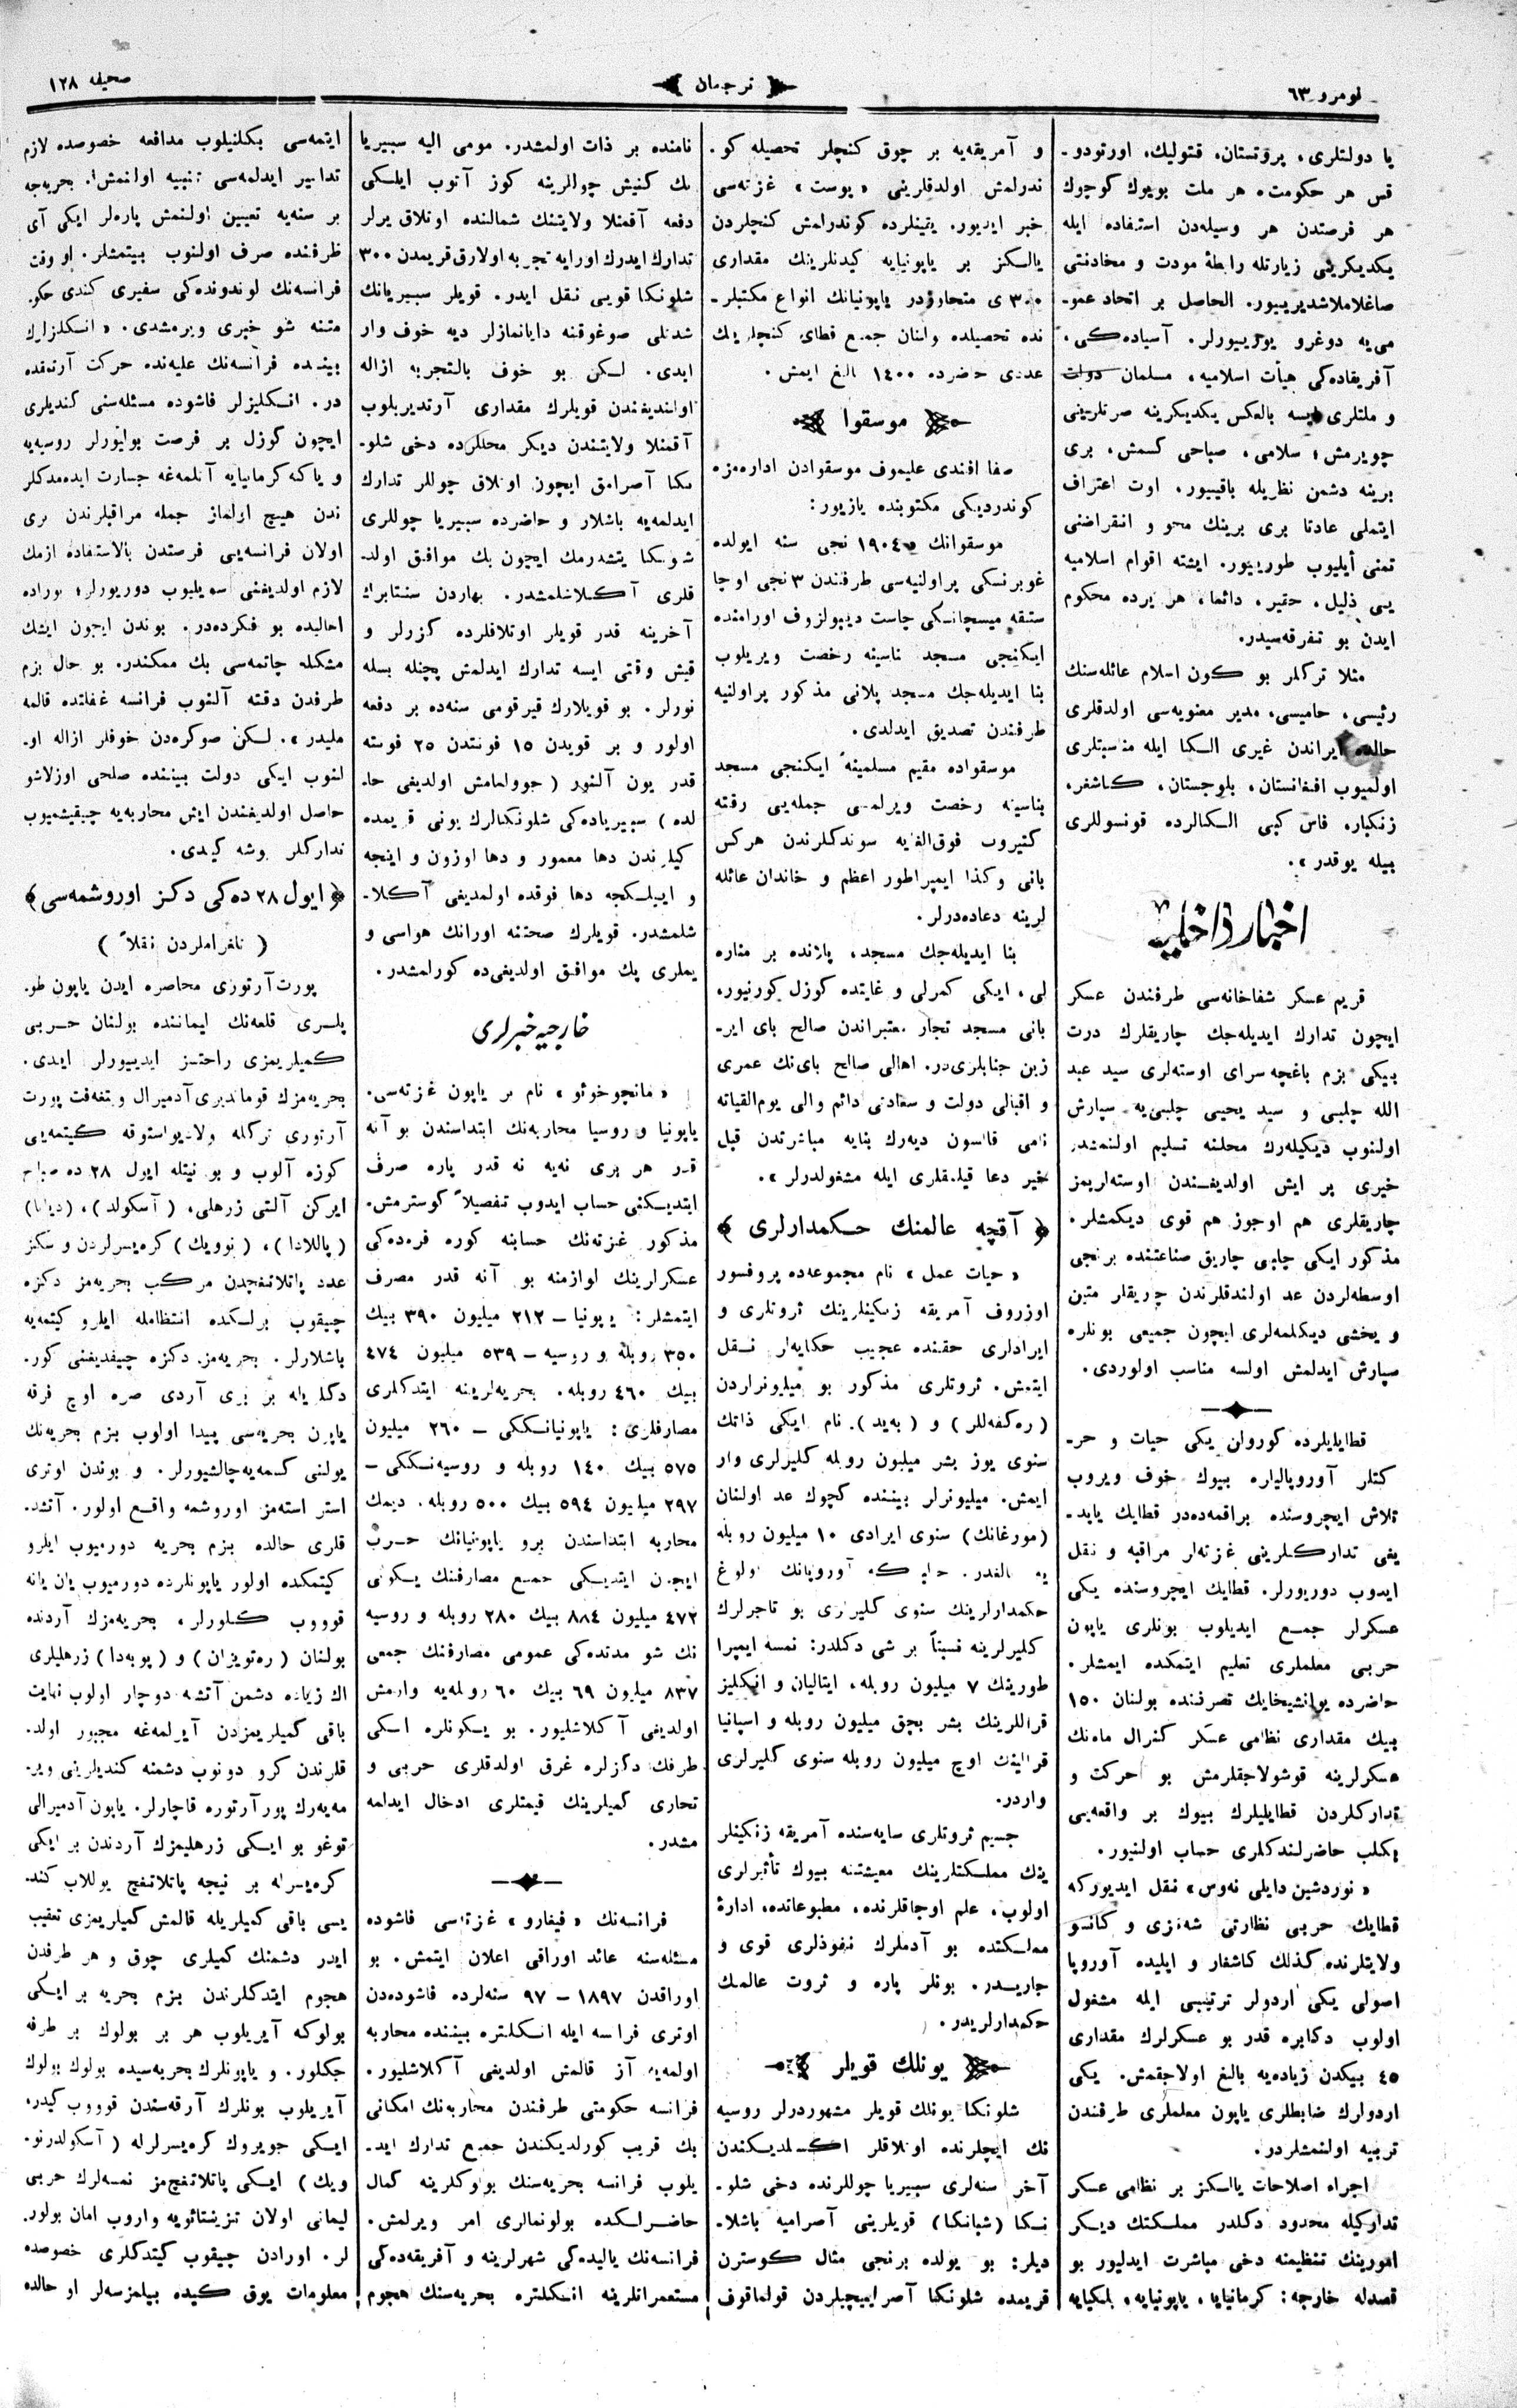 نومرو ٦٣
ترجمان
صحيفه ١٢٨
يا دولتلرى، پروتستان، قتوليك، اورتودو-
قس هر حكومت، هر ملت بويوك كوچوك
هر فرصتدن هر وسيله‌دن استفاده ايله
يكديكرينى زيارتله رابطهٔ مودت و مخادنتى
صاغلاملاشديرييور. الحاصل بر اتحاد عمو-
مى‌يه دوغرو يورييورلر. آسياده‌كى،
آفريقاده‌كى هيأت اسلاميه، مسلمان دولت
و ملتلرى ايسه بالعكس يكديكرينه صرتلرينى
چويرمش؛ سلامى، صباحى كسمش، برى
برينه دشمن نظريله باقييور. اوت اعتراف
ايتملى عادتا برى برينك محو و انقراضنى
تمنى ايليوب طورييور. ايشته اقوام اسلاميه
يى ذليل، حقير، دائما، هر يرده محكوم
ايدن بو تفرقه‌سيدر.
مثلا تركلر بو كون اسلام عائله‌سنك
رئيسى، حاميسى، مدير معنويه‌سى اولدقلرى
حالده ايراندن غيرى الكا ايله مناسبتلرى
اولميوب افغانستان، بلوجستان، كاشغر،
زنكبار، فاس كبى الكالرده قونسوللرى
بيله يوقدر».
اخبار داخليه
قريم عسكر شفاخانه‌سى طرفندن عسكر
ايچون تدارك ايديله‌جك چاريقلرك درت
بيكى بزم باغچه سراى اوسته‌لرى سيد عبد
الله چلبى و سيد يحيى چلبى‌يه سپارش
اولنوب ديكيله‌رك محلنه تسليم اولنمشدر.
خيرى بر ايش اولديغندن اوسته‌لريمز
چاريقلرى هم اوجوز هم قوى ديكمشلر.
مذكور ايكى چلبى چاريق صناعتنده برنجى
اوسطه‌لردن عد اولندقلرندن چريقلر متين
و يخشى ديكلمه‌لرى ايچون جميعى بونلره
سپارش ايدلمش اولسه مناسب اولوردى.
قطايليلرده كورولن يكى حيات و حر-
كتلر آوروپاليلره بيوك خوف ويروب
تلاش ايچروسنده براقمه‌ده‌در قطايك ياپد-
يغى تداركلرينى غزته‌لر مراقبه و نقل
ايدوب دوريورلر. قطايك ايچروسنده يكى
عسكرلر جمع ايديلوب بونلرى ياپون
حربى معلملرى تعليم ايتمكده ايمشلر.
حاضرده يوانشيخايك تصرفنده بولنان ١٥٠
بيك مقدارى نظامى عسكر كنرال مانك
عسكرلرينه قوشولاجقلرمش بو حركت و
تداركلردن قطايليلرك بيوك بر واقعه‌يى
بكلب حاضرلندكلرى حساب اولنيور.
«نوردشين دايلى نه‌وس» نقل ايديوركه
قطايك حربى نظارتى شه‌نزى و كانسو
ولايتلرنده كذلك كاشغار و ايليده آوروپا
اصولى يكى اردولر ترتيبى ايله مشغول
اولوب دكابره قدر بو عسكرلرك مقدارى
٤٥ بيكدن زياده‌يه بالغ اولاجقمش. يكى
اردولرك ضابطلرى ياپون معلملرى طرفندن
تربيه اولنمشلردر.
اجراء اصلاحات يالكز بر نظامى عسكر
تداركيله محدود دكلدر مملكتك ديكر
امورينك تنظيمنه دخى مباشرت ايدليور بو
قصدله خارجه: كرمانيايا، ياپونيايه، بلكيايه
و آمريقه‌يه بر چوق كنچلر تحصيله كو-
ندرلمش اولدقلرينى «پوست» غزته‌سى
خبر ايديور. يقينلرده كوندرلمش كنچلردن
يالكز بر ياپونيايه كيدنلرينك مقدارى
٣٠٠ى متجاوزدر ياپونيانك انواع مكتبلر-
نده تحصيلده ولنان جميع قطاى كنچلرينك
عددى حاضرده ١٤٠٠ بالغ ايمش.
موسقوا
صفا افندى عليموف موسقوادن اداره‌مزه
كوندرديكى مكتوبنده يازيور:
موسقوانك ١٩٠٤ نجى سنه ايولده
غوبرنسكى پراولنيه‌سى طرفندن ٣نجى اوچا
ستقه ميسچانسكى چاست ديبولزوف اورامنده
ايكنجى مسجد بناسينه رخصت ويريلوب
بنا ايديله‌جك مسجد پلانى مذكور پراولنيه
طرفندن تصديق ايدلدى.
موسقواده مقيم مسلمينهٔ ايكنجى مسجد
بناسينه رخصت ويرلمسى جمله‌يى رقته
كتيروب فوق‌الغايه سوندكلرندن هركس
بانى وكذا ايمپراطور اعظم و خاندان عائله
لرينه دعاده‌درلر.
بنا ايديله‌جك مسجد، ياننده بر مناره
لى، ايكى كمرلى و غايتده كوزل كورنيور.
بانى مسجد تجار معتبراندن صالح باى اير-
زين جنابلرى‌در. اهالى صالح باى‌نك عمرى
و اقبالى دولت و سعادتى دائم والى يوم‌القيامه
نامى قالسون ديه‌رك بنايه مباشرتدن قبل
خير دعا قيلمقلرى ايله مشغولدرلر».
﴿ آقچه عالمنك حكمدارلرى ﴾
«حيات عمل» نام مجموعه‌ده پروفسور
اوزروف آمريقه زنكينلرينك ثروتلرى و
ايرادلرى حقنده عجيب حكايه‌لر نقل
ايتمش. ثروتلرى مذكور بو ميليونراردن
(ره‌كفه‌للر) و (به‌يد). نام ايكى ذاتك
سنوى يوز بشر ميليون روبله كليرلرى وار
ايمش. ميليونرلر بيننده كچوك عد اولنان
(مورغانك) سنوى ايرادى ١٠ ميليون روبله
حكمدارلرينك سنوى كليرلرى بو تاجرلرك
كليرلرينه نسبتاً بر شى دكلدر: نمسه ايمپرا
طورينك ٧ ميليون روبله، ايتاليان و انكليز
قراللرينك بشر بچق ميليون روبله و اسپانيا
قرالينك اوچ ميليون روبله سنوى كليرلرى
واردر.
جسيم ثروتلرى سايه‌سنده آمريقه زنكينلر
ينك مملكتلرينك معيشتنه بيوك تأثيرلرى
اولوب، علم اوجاقلرنده، مطبوعاتده، ادارهٔ
مملكتده بو آدملرك نفوذلرى قوى و
جاريدر. بونلر پاره و ثروت عالمك
حكمدارلريدر.
يونلك قويلر
شلونكا يونلك قويلر مشهوردرلر روسيه
نك ايچلرنده اوتلاقلر اكسلديكندن
آخر سنه‌لرى سيبيريا چوللرنده دخى شلو-
نكا (شپانكا) قويلرينى آصراميه باشلا-
ديلر: بو يولده برنجى مثال كوسترن
قريمده شلونكا آصراييچيلردن قولماقوف
نامنده بر ذات اولمشدر. مومى اليه سيبيريا
نك كنيش چوللرينه كوز آتوب ايلكى
دفعه آقمئلا ولايتنك شمالنده اوتلاق يرلر
تدارك ايدرك اورايه تجربه اولارق قريمدن ٣٠٠
شلونكا قويى نقل ايدر. قويلر سيبريانك
شدتلى صوغوقنه دايانمازلر ديه خوف وار
ايدى. لكن بو خوف بالتجربه ازاله
اولنديغندن قويلرك مقدارى آرتديريلوب
آقمئلا ولايتندن ديكر محللرده دخى شلو-
نكا آصرامق ايچون اوتلاق چوللر تدارك
ايدلمه‌يه باشلار و حاضرده سيبيريا چوللرى
شونكا يتشدرمك ايچون بك موافق اولد-
قلرى آكلاشلمشدر. بهاردن سنتابرك
آخرينه قدر قويلر اوتلاقلرده كزرلر و
قيش وقتى ايسه تدارك ايدلمش پچنله بسله
نورلر. بو قويلارك قيرقومى سنه‌ده بر دفعه
اولور و بر قويدن ١٥ فونتدن ٢٥ فونته
قدر يون آلنور (جوولمامش اولديغى حا-
لده) سيبيرياده‌كى شلونكالرك يونى قريمده
كيلرندن دها معمور و دها اوزون و اينجه
و اييلكجه دها فوقده اولمديغى آكلا-
شلمشدر. قويلرك صحتنه اورانك هواسى و
يملرى پك موافق اولديغى‌ده كورلمشدر.
خارجيه خبرلرى
«مانچوخوئو» نام بر ياپون غزته‌سى
ياپونيا و روسيا محاربه‌نك ابتداسندن بو آنه
قدر هر برى نه‌يه نه قدر پاره صرف
ايتديكنى حساب ايدوب تفصيلاً كوسترمش.
مذكور غزته‌نك حسابنه كوره قره‌ده‌كى
عسكرلرينك لوازمنه بو آنه قدر مصرف
ايتمشلر: ياپونيا - ٢١٢ ميليون ٣٩٠ بيك
٣٥٠ روبله و روسيه - ٥٣٩ ميليون ٤٧٤
بيك ٤٦٠ روبله. بحريه‌لرينه ايتدكلرى
مصارفلرى: ياپونيانككى - ٢٦٠ ميليون
٥٧٥ بيك ١٤٠ روبله و روسيه‌نككى -
٢٩٧ ميليون ٥٩٤ بيك ٥٠٠ روبله. ديمك
محاربه ابتداسندن برو ياپونيانك حرب
ايچون ايتديكى جميع مصارفنك يكونى
٤٧٢ ميليون ٨٨٤ بيك ٢٨٠ روبله و روسيه
نك شو مدتده‌كى عمومى مصارفنك جمعى
٨٣٧ ميليون ٦٩ بيك ٦٠ روبله‌يه وارمش
اولديغى آكلاشليور. بو يكونلره ايكى
طرفك دكزلره غرق اولدقلرى حربى و
تجارى كميلرينك قيمتلرى ادخال ايدلمه
مشدر.
فرانسه‌نك «فيغارو» غزته‌سى فاشوده
مسئله‌سنه عائد اوراقى اعلان ايتمش. بو
اوراقدن ١٨٩٧ - ٩٧ سنه‌لرده فاشوده‌دن
اوترى فرانسه ايله انكلتره بيننده محاربه
اولمه‌يه آز قالمش اولديغى آكلاشليور.
فرانسه حكومتى طرفندن محاربه‌نك امكانى
بك قريب كورلديكندن جميع تدارك ايد-
يلوب فرانسه بحريه‌سنك بولوكلرينه كمال
حاضرلكده بولونمالرى امر ويرلمش.
فرانسه‌نك ياليده‌كى شهرلرينه و آفريقه‌ده‌كى
مستعمراتلرينه انكلتره بحريه‌سنك هجوم
ايتمه‌سى بكلنيلوب مدافعه خصوصده لازم
تدابير ايدلمه‌سى تنبيه اولنمش. بحريه‌جه
بر سنه‌يه تعيين اولنمش پاره‌لر ايكى آى
ظرفنده صرف اولنوب بيتمشلر. او وقت
فرانسه‌نك لوندونده‌كى سفيرى كندى حكو-
متنه شو خبرى ويرمشدى. «انكليزلرك
بيننده فرانسه‌نك عليه‌نده حركت آرتمقده
در. انكليزلر فاشوده مسئله‌سنى كنديلرى
ايچون كوزل بر فرصت بوليورلر روسيه‌يه
و ياكه كرمانيايه آتلمه‌غه جسارت ايده‌مدكلر
ندن هيچ اولماز جمله مراقبلرندن برى
اولان فرانسه‌يى فرصتدن بالاستفاده ازمك
لازم اولديغنى سويليوب دوريورلر؛ بوراده
اهاليده بو فكرده‌در. بوندن ايچون ايشك
مشكله چاتمه‌سى بك ممكندر. بو حال بزم
طرفدن دقته آلنوب فرانسه غفلتده قالمه
مليدر». لكن صوكره‌دن خوفلر ازاله او-
لنوب ايكى دولت بيننده صلحى اوزلاشو
حاصل اولديغندن ايش محاربه‌يه چيقيشميوب
تداركلر بوشه كيدى.
﴿ايول ٢٨ ده‌كى دكز اوروشمه‌سى﴾
(تلغراملردن نقلاً)
پورت آرتورى محاصره ايدن ياپون طو-
پلرى قلعه‌نك ليماننده بولنان حربى
كميلريمزى راحتسز ايدييورلر ايدى.
بحريه‌مزك قوماندیرى آدميرال ويتغه‌فت پورت
آرتورى تركله ولاديواستوقه كيتمه‌يى
كوزه آلوب و بو نيتله ايول ٢٨ ده صباح
ايركن آلتى زرهلى، (آسكولد)، (ديانا)
(پاللادا)، (نوويك) كره‌يسرلردن و سكز
عدد پاتلاتغچدن مركب بحريه‌مز دكزه
چيقوب برلكده انتظامله ايلرو كيتمه‌يه
باشلارلر. بحريه‌مز دكزه چيقديغنى كور-
دكلريله بر برى آردى صره اوچ فرقه
ياپون بحريه‌سى پيدا اولوب بزم بحريه‌نك
يولنى كسمه‌يه چالشيورلر. و بوندن اوترى
استر استه‌مز اوروشمه واقع اولور. آتشد-
قلرى حالده بزم بحريه دورميوب ايلرو
كيتمكده اولور ياپونلرده دورميوب يان يانه
قووب كلورلر، بحريه‌مزك آردنده
بولنان (ره‌تويزان) و (پوبه‌دا) زرهليلرى
اك زياده دشمن آتشنه دوچار اولوب نهايت
باقى كميلريمزدن آيرلمه‌غه مجبور اولد-
قلرندن كرو دونوب دشمنه كنديلرينى وير-
مه‌يه‌رك پورآرتوره قاچارلر. ياپون آدميرالى
توغو بو ايكى زرهليمزك آردندن بر ايكى
كره‌يسرله بر نيجه پاتلاتغچ يوللاب كند-
يسى باقى كميلريله قالمش كميلريمزى تعقيب
ايدر دشمنك كميلرى چوق و هر طرفدن
هجوم ايتدكلرندن بزم بحريه بر ايكى
بولوكه آيريلوب هر بر بولوك بر طرفه
چكلور. و ياپونلرك بحريه‌سيده بولوك بولوك
آيريلوب بونلرك آرقه‌سندن قووب كيدر.
ايكى جويروك كره‌يسرلرله (آسكولدرنو-
ويك) ايكى پاتلاتغچ‌مز نمسه‌لرك حربى
ليمانى اولان تزينشتائويه واروب امان بولور-
لر. اورادن چيقوب كيتدكلرى خصوصده
معلومات يوق كيده بيلمزسه‌لر او حالده